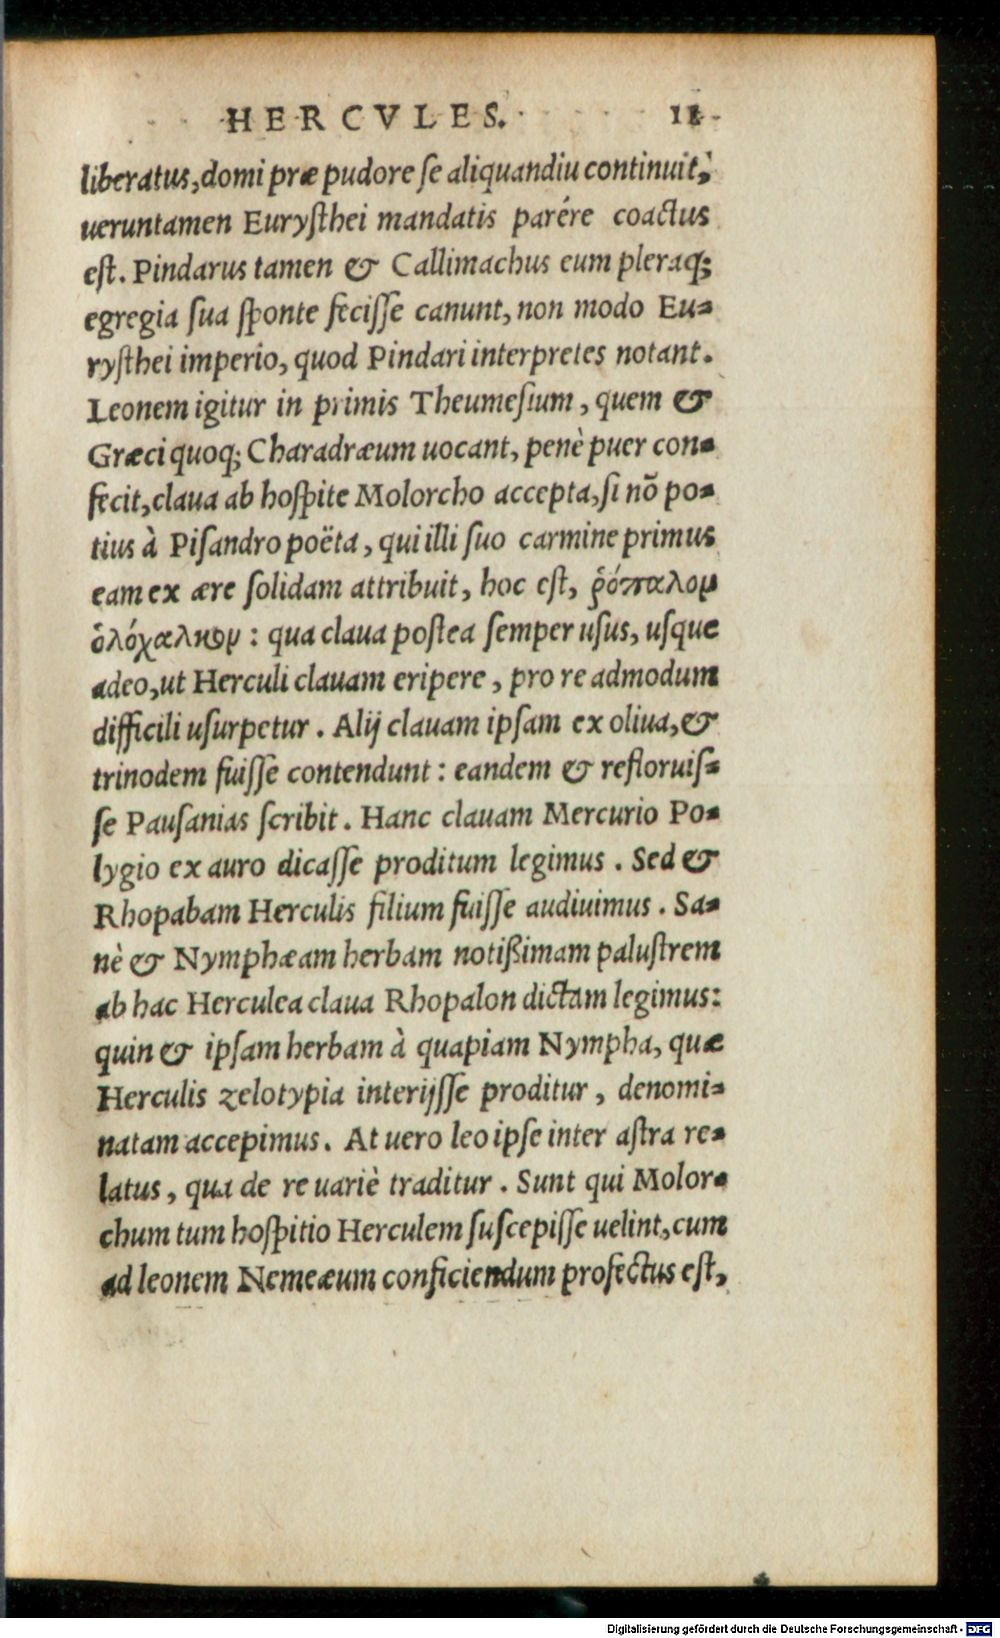 HERCVLES. 11
liberatus, domi præ pudore se aliquandiu continuit,
ueruntamen Eurysthei mandatis parére coactus
est. Pindarus tamen & Callimachus eum pleraq;
egregia sua sponte fecisse canunt, non modo Eu-
rysthei imperio, quod Pindari interpretes notant.
Leonem igitur in primis Theumesium, quem &
Græci quoq; Charadræum uocant, penè puer con-
fecit, claua ab hospite Molorcho accepta, si nõ po-
tius à Pisandro poëta, qui illi suo carmine primus
eam ex ære solidam attribuit, hoc est, ῥόπαλον
ὁλόχαλκον: qua claua postea semper usus, usque
adeo, ut Herculi clauam eripere, pro re admodum
difficili usurpetur. Alij clauam ipsam ex oliua, &
trinodem fuisse contendunt: eandem & refloruis-
se Pausanias scribit. Hanc clauam Mercurio Po-
lygio ex auro dicasse proditum legimus. Sed &
Rhopabam Herculis filium fuisse audiuimus. Sa-
nè & Nymphæam herbam notißimam palustrem
ab hac Herculea claua Rhopalon dictam legimus:
quin & ipsam herbam à quapiam Nympha, quæ
Herculis zelotypia interijsse proditur, denomi-
natam accepimus. At uero leo ipse inter astra re-
latus, qua de re uariè traditur. Sunt qui Molor-
chum tum hospitio Herculem suscepisse uelint, cum
ad leonem Nemeæum conficiendum profectus est,
Digitalisierung gefördert durch die Deutsche Forschungsgemeinschaft - DFG